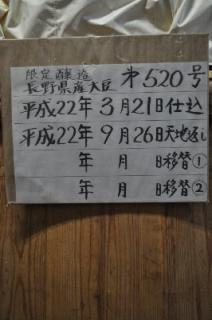 限定醸造 第520号
長野県産大豆
平成22年 3月21日仕込
平成22年 9月26日天地返し
年 月 日移替①
年 月 日移替②